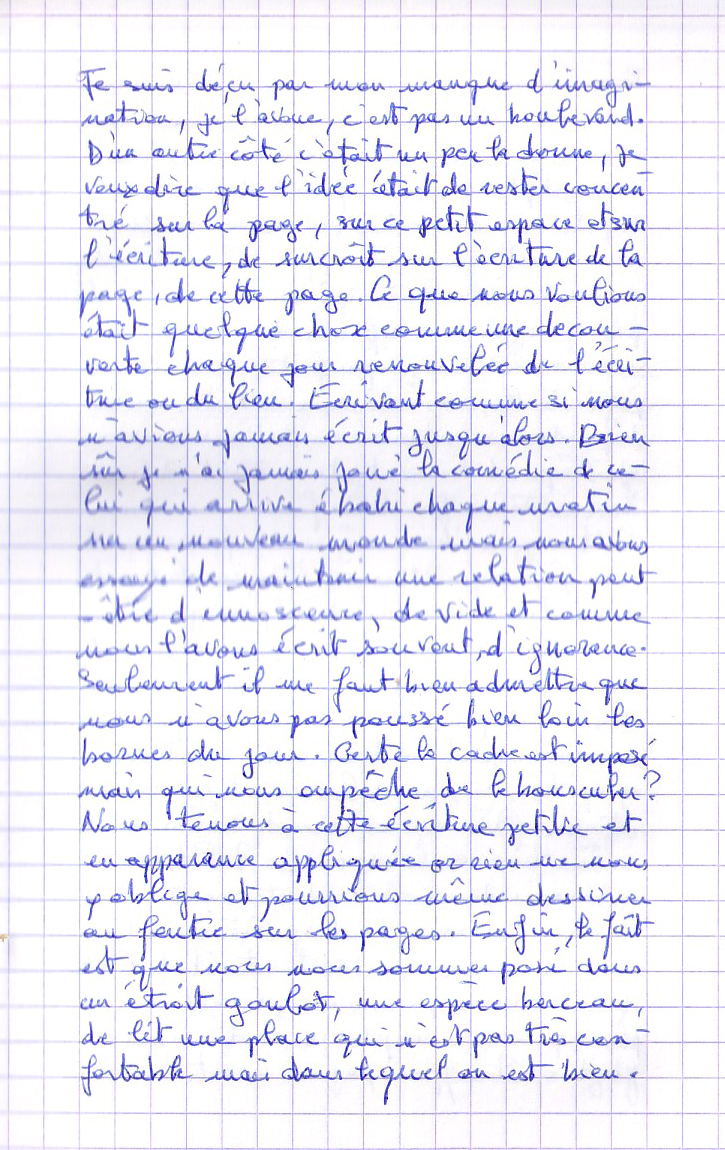 Je suis déçu par mon manque d'imagi-
nation, je l'avoue, c'est pas un boulevard.
D'un autre côté c'était un peu la donne, je
veux dire que l'idée était de rester concen
tré sur la page, sur ce petit espace et sur
l'écriture, de surcroît sur l'écriture de la
page, de cette page. Ce que nous voulions
était quelque chose comme une décou-
verte chaque jour renouvelée de l'écri-
ture ou du lieu. Ecrivant comme si nous
n'avions jamais écrit jusqu'alors. Bien
sûr je n'ai jamais joué la comédie de ce-
lui qui arrive ébahi chaque matin
sur un nouveau monde mais nous avons
essayé de maintenir une relation peut
-être d'innoscence, de vide et comme
nous l'avons écrit souvent, d'ignorence.
Seulement il me faut bien admettre que
nous n'avons pas poussé bien loin les
bornes du jour. Certe le cadre est imposé
mais qui nous empêche de le bousculer?
Nous tenons à cette écriture petite et
en apparance appliquée or rien ne nous
y oblige et pourrions même dessiner
au feutre sur les pages. Enfin, le fait
est que nous nous sommes posé dans
un étroit goulot, une espèce berceau,
de lit une place qui n'est pas très con-
fortable mais dans lequel on est bien.